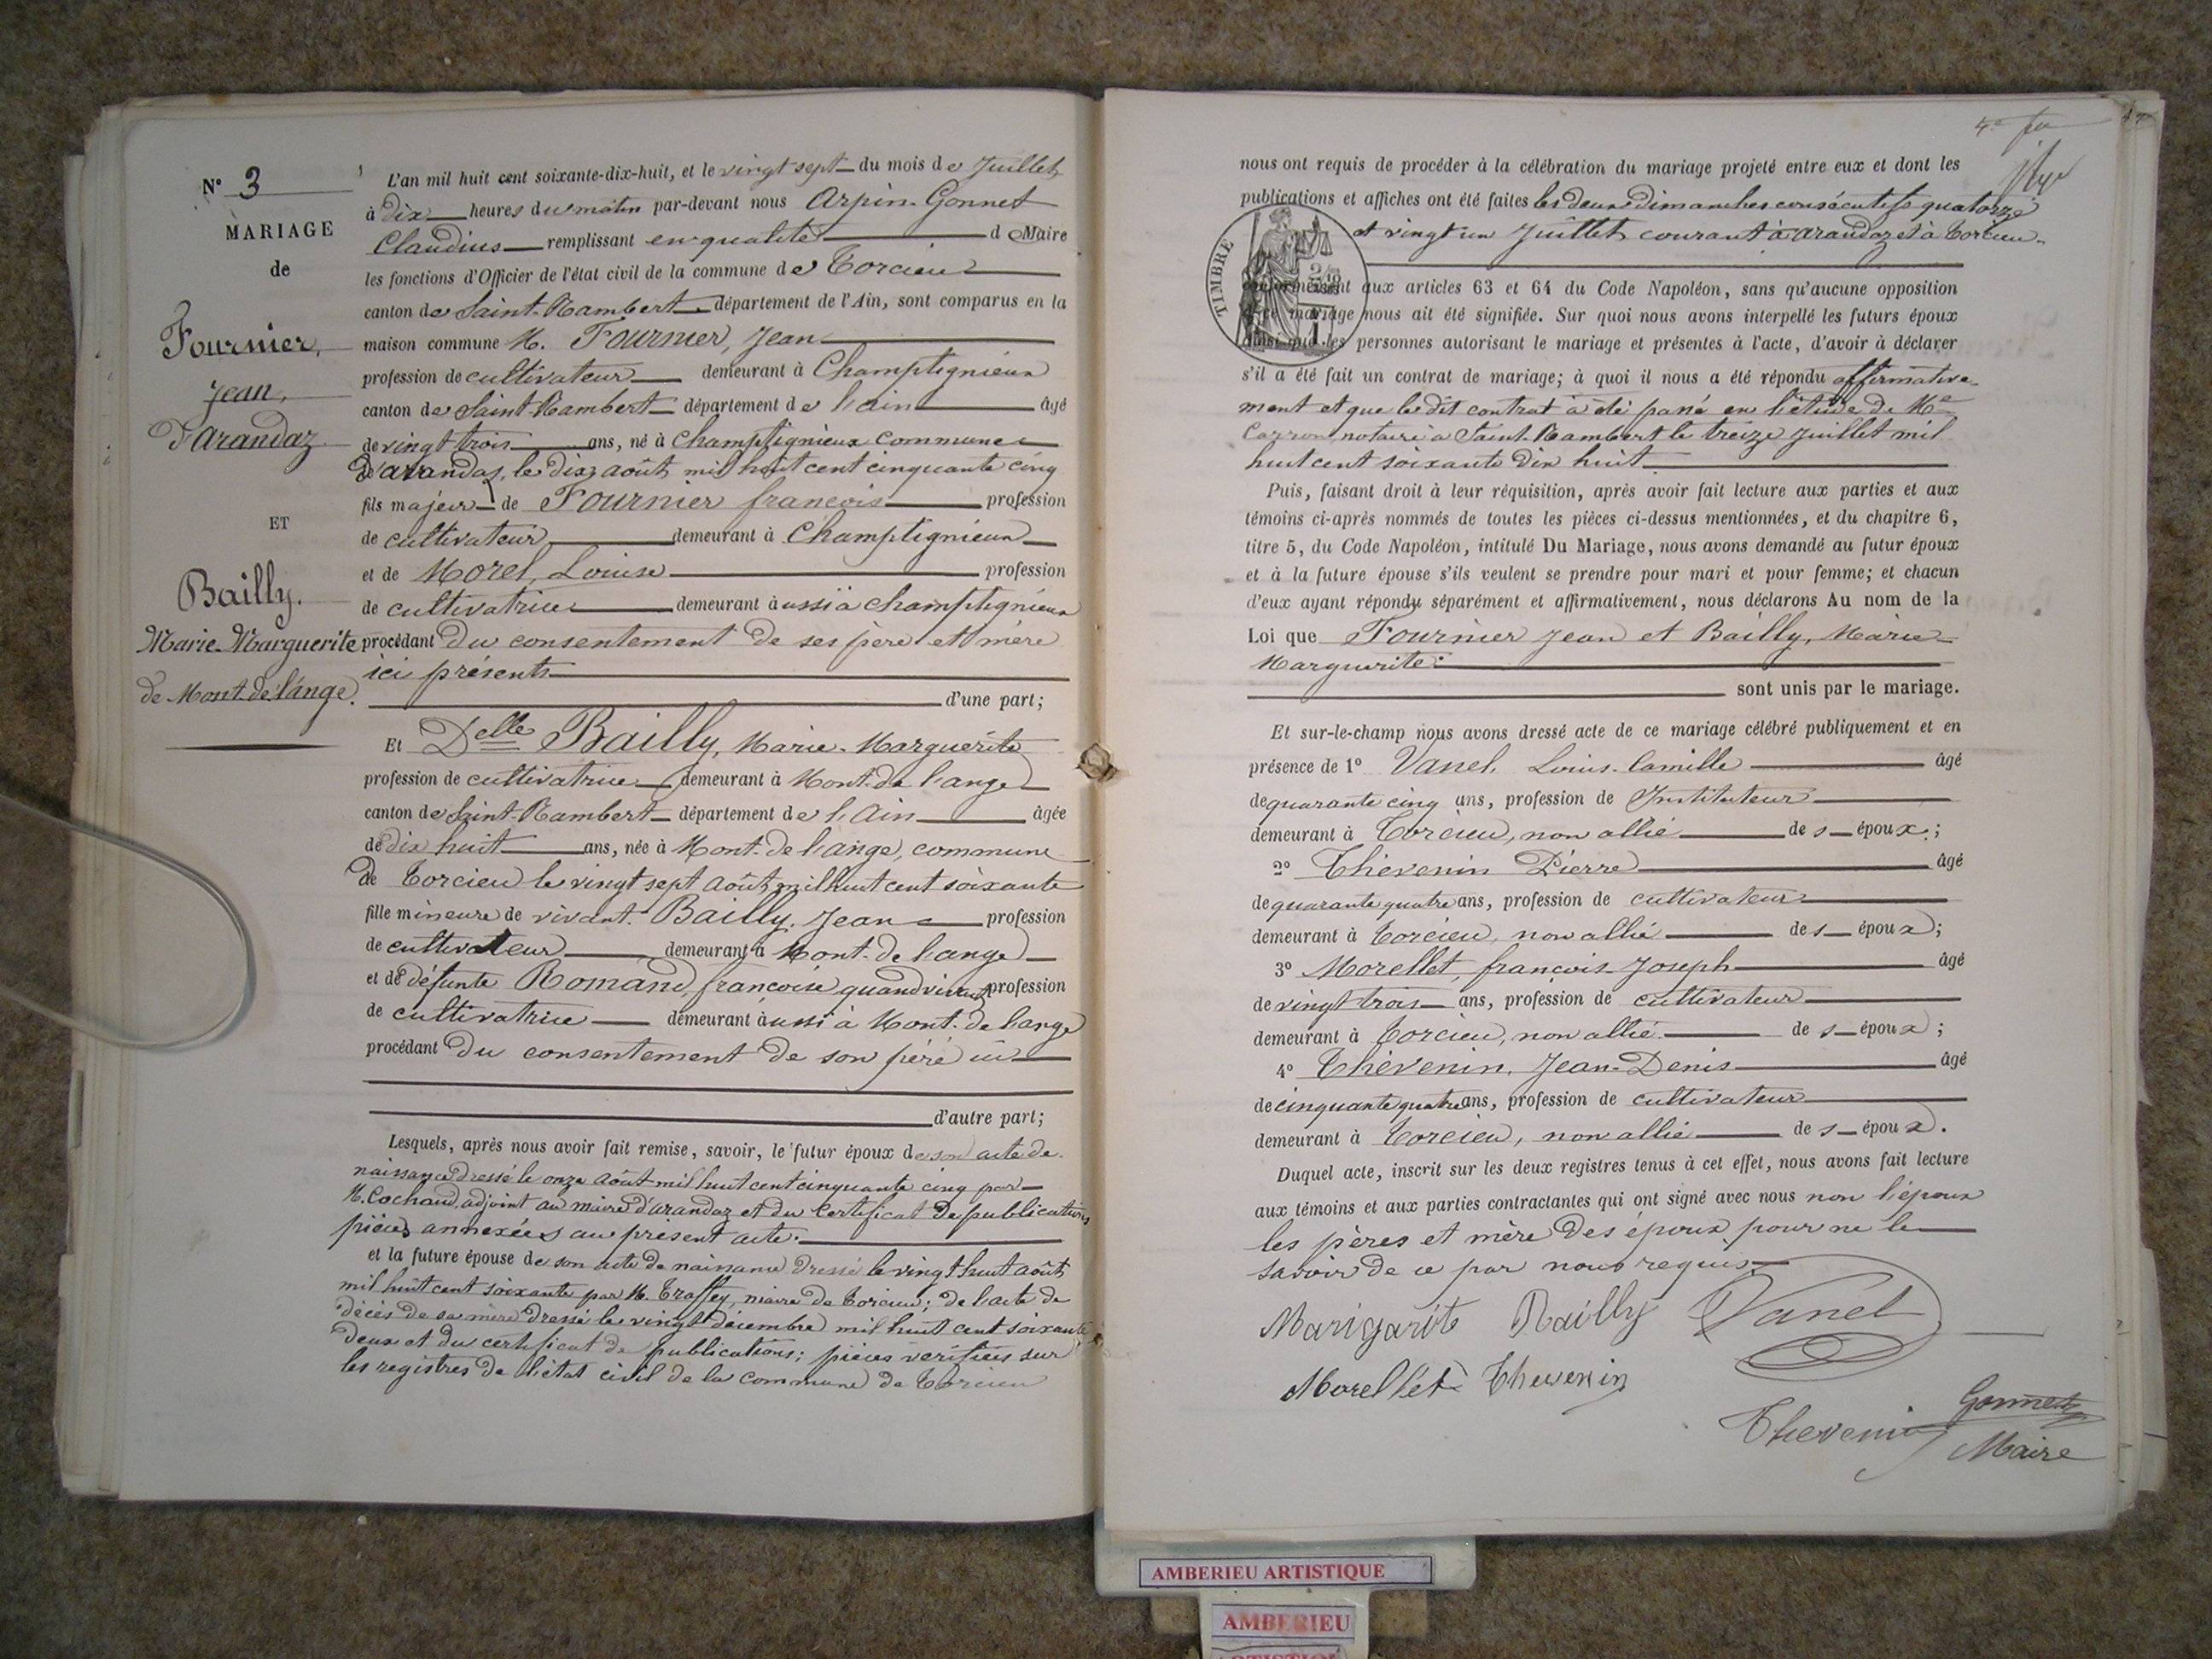 N° 3
MARIAGE
de
Fournier,
Jean,
D'Arandaz
ET
Bailly.
Marie-Marguerite
de Mont-de-l'ange.
L'an mil huit cent soixante-dix-huit, et le vingt sept du mois de Juillet
à dix heures du matin par-devant nous Arpin-Gonnet
Claudius remplissant en qualité de Maire
les fonctions d'Officier de l'état civil de la commune de Torcieu
canton de Saint-Rambert département de l'Ain, sont comparus en la
maison commune M. Fournier, Jean
profession de cultivateur demeurant à Champtignieux
canton de Saint-Rambert département de l'ain âgé
de vingt trois ans, né à Champtignieux commune
de arandas, le dix août mil huit cent cinquante cinq
fils majeur de Fournier françois profession
de cultivateur demeurant à Champtignieux
et de Morel, Louise profession
de cultivatrice demeurant aussi à champtignieux
procédant du consentement de ses père et mère
ici présents
d'une part;
Et Delle Bailly, Marie-Marguerite
profession de cultivatrice demeurant à Mont-de l'ange
canton de Saint-Rambert département de l'Ain âgée
de dix huit ans, née à Mont-de l'ange, commune
de Torcieu le vingt sept août mil huit cent soixante
fille mineure de vivant Bailly, Jean profession
de cultivateur demeurant à Mont-de l'ange
et de défunte Romand, françoise quand vivait profession
de cultivatrice demeurant aussi à Mont-de l'ange
procédant du consentement de son père ici
d'autre part;
Lesquels, après nous avoir fait remise, savoir, le futur époux de son acte de
naissance dressé le onze août mil huit cent cinquante cinq par
M. Cochaud, adjoint au maire d'arandaz et du certificat de publications
pièces annexées au présent acte.
et la future épouse de son acte de naissance dressé le vingt huit août
mil huit cent soixante par M. Traffey, maire de Torcieu; de l'acte de
décès de sa mère dressé le vingt décembre mil huit cent soixante
deux et du certificat de publications; pièces vérifiées sur
les registres de l'état civil de la commune de Torcieu
4e
nous ont requis de procéder à la célébration du mariage projeté entre eux et dont les
publications et affiches ont été faites les deux dimanches consécutifs quatorze
et vingt un Juillet courant à arandaz et à Torcieu.
TIMBRE
conformément aux articles 63 et 64 du Code Napoléon, sans qu'aucune opposition
à ce mariage nous ait été signifiée. Sur quoi nous avons interpellé les futurs époux
ainsi que les personnes autorisant le mariage et présentes à l'acte, d'avoir à déclarer
s'il a été fait un contrat de mariage; à quoi il nous a été répondu affirmative-
ment et que le dit contrat a été passé en l'étude de Me
Carron notaire à Saint-Rambert le treize juillet mil
huit cent soixante dix huit
Puis, faisant droit à leur réquisition, après avoir fait lecture aux parties et aux
témoins ci-après nommés de toutes les pièces ci-dessus mentionnées, et du chapitre 6,
titre 5, du Code Napoléon, intitulé Du Mariage, nous avons demandé au futur époux
et à la future épouse s'ils veulent se prendre pour mari et pour femme; et chacun
d'eux ayant répondu séparément et affirmativement, nous déclarons Au nom de la
Loi que Fournier Jean et Bailly, Marie
Marguerite
sont unis par le mariage.
Et sur-le-champ nous avons dressé acte de ce mariage célébré publiquement et en
présence de 1° Vanel, Louis-Camille âgé
de quarante cinq ans, profession de Instituteur
demeurant à Torcieu, non allié des époux;
2° Thévenin Pierre âgé
de quarante quatre ans, profession de cultivateur
demeurant à Torcieu, non allié des époux;
3° Morellet, françois-Joseph âgé
de vingt trois ans, profession de cultivateur
demeurant à Torcieu, non allié des époux;
4° Thévenin, Jean-Denis âgé
de cinquante quatre ans, profession de cultivateur
demeurant à Torcieu, non allié des époux.
Duquel acte, inscrit sur les deux registres tenus à cet effet, nous avons fait lecture
aux témoins et aux parties contractantes qui ont signé avec nous non l'époux
les pères et mère des époux pour ne le
savoir de ce par nous requis
Marigarite Bailly Vanel
Morellet Thevenin
Thevenin Gonnet
Maire
AMBERIEU ARTISTIQUE
AMBERIEU
ARTISTIQUE